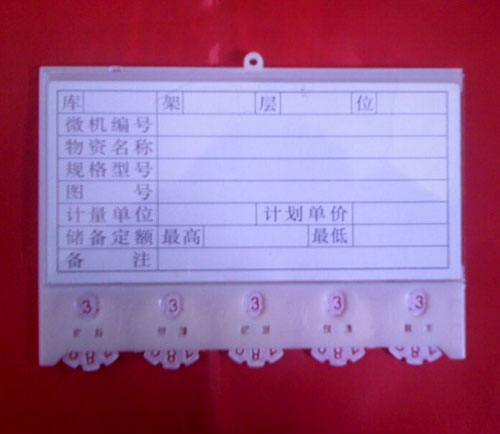 库 架 层 位
微机编号
物资名称
规格型号
图 号
计量单位 计划单价
储备定额 最高 最低
备 注
3 3 3 3 3